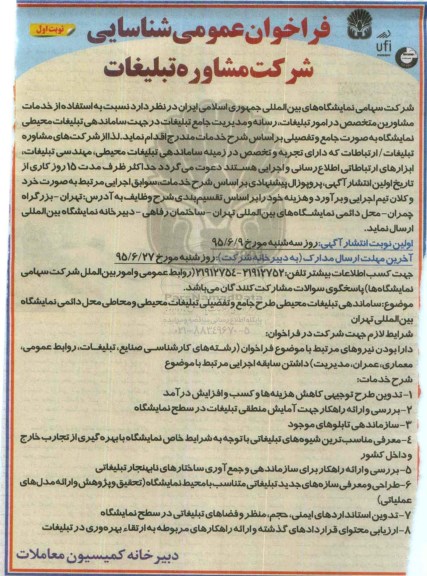 نوبت اول
فراخوان عمومی شناسایی
شرکت مشاوره تبلیغات
ufi
شرکت سهامی نمایشگاه‌های بین‌المللی جمهوری اسلامی ایران در نظر دارد نسبت به استفاده از خدمات
مشاورین متخصص در امور تبلیغات، رسانه و مدیریت جامع تبلیغات در جهت ساماندهی تبلیغات محیطی
نمایشگاه به صورت جامع و تفصیلی بر اساس شرح خدمات مندرج اقدام نماید. لذا از شرکت‌های مشاوره
تبلیغات / ارتباطات که دارای تجربه و تخصص در زمینه ساماندهی تبلیغات محیطی، مهندسی تبلیغات،
ابزارهای ارتباطاتی اطلاع رسانی و اجرایی هستند دعوت می گردد حداکثر ظرف مدت ۱۵ روز کاری از
تاریخ اولین انتشار آگهی، پروپوزال پیشنهادی بر اساس شرح خدمات، سوابق اجرایی مرتبط به صورت خرد
و کلان تیم اجرایی و برآورد و هزینه خود را بر اساس تقسیم بندی شرح وظایف به آدرس: تهران - بزرگراه
چمران - محل دائمی نمایشگاه های بین المللی تهران - ساختمان رفاهی - دبیرخانه نمایشگاه بین المللی
ارسال نماید.
اولین نوبت انتشار آگهی: روز سه شنبه مورخ ۹۵/۶/۹
آخرین مهلت ارسال مدارک (به دبیرخانه شرکت): روز شنبه مورخ ۹۵/۶/۲۷
جهت کسب اطلاعات بیشتر تلفن: ۲۱۹۱۲۷۵۲-۲۱۹۱۲۷۵٤ (روابط عمومی و امور بین الملل شرکت سهامی
نمایشگاه‌ها) پاسخگوی سوالات مشارکت کنندگان می‌باشد.
موضوع: ساماندهی تبلیغات محیطی طرح جامع و تفصیلی تبلیغات محیطی و محاطی محل دائمی نمایشگاه
بین المللی تهران
شرایط لازم جهت شرکت در فراخوان:
دارا بودن نیروهای مرتبط با موضوع فراخوان (رشته‌های کارشناسی صنایع، تبلیغات، روابط عمومی،
معماری، عمران، مدیریت) داشتن سابقه اجرایی مرتبط با موضوع
شرح خدمات:
۱- تدوین طرح توجیهی کاهش هزینه‌ها و کسب و افزایش درآمد
۲- بررسی و ارائه راهکار جهت آمایش منطقی تبلیغات در سطح نمایشگاه
۳- سازماندهی تابلوهای موجود
٤- معرفی مناسب ترین شیوه‌های تبلیغاتی با توجه به شرایط خاص نمایشگاه با بهره گیری از تجارب خارج
و داخل کشور
۵- بررسی و ارائه راهکار برای سازماندهی و جمع آوری ساختارهای نابهنجار تبلیغاتی
۶- طراحی و معرفی سازه‌های جدید تبلیغاتی متناسب با محیط نمایشگاه (تحقیق و پژوهش و ارائه مدل های
عملیاتی)
۷- تدوین استانداردهای ایمنی، حجم، منظر و فضاهای تبلیغاتی در سطح نمایشگاه
۸- ارزیابی محتوای قراردادهای گذشته و ارائه راهکارهای مربوطه به ارتقاء بهره وری در تبلیغات
دبیرخانه کمیسیون معاملات